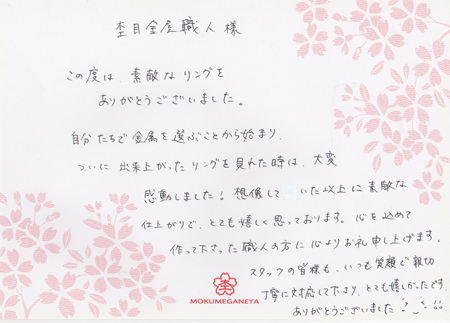 杢目金屋職人様
この度は、素敵なリングを
ありがとうございました。
自分たちで金属を選ぶことから始まり、
ついに出来上がったリングを見れた時は、大変
感動しました！想像していた以上に素敵な
仕上がりで、とても嬉しく思っております。心を込めて
作って下さった職人の方に心よりお礼申し上げます。
スタッフの皆様も、いつも笑顔で親切
丁寧に対応して下さり、とても嬉しかったです。
ありがとうございました!!
MOKUMEGANEYA